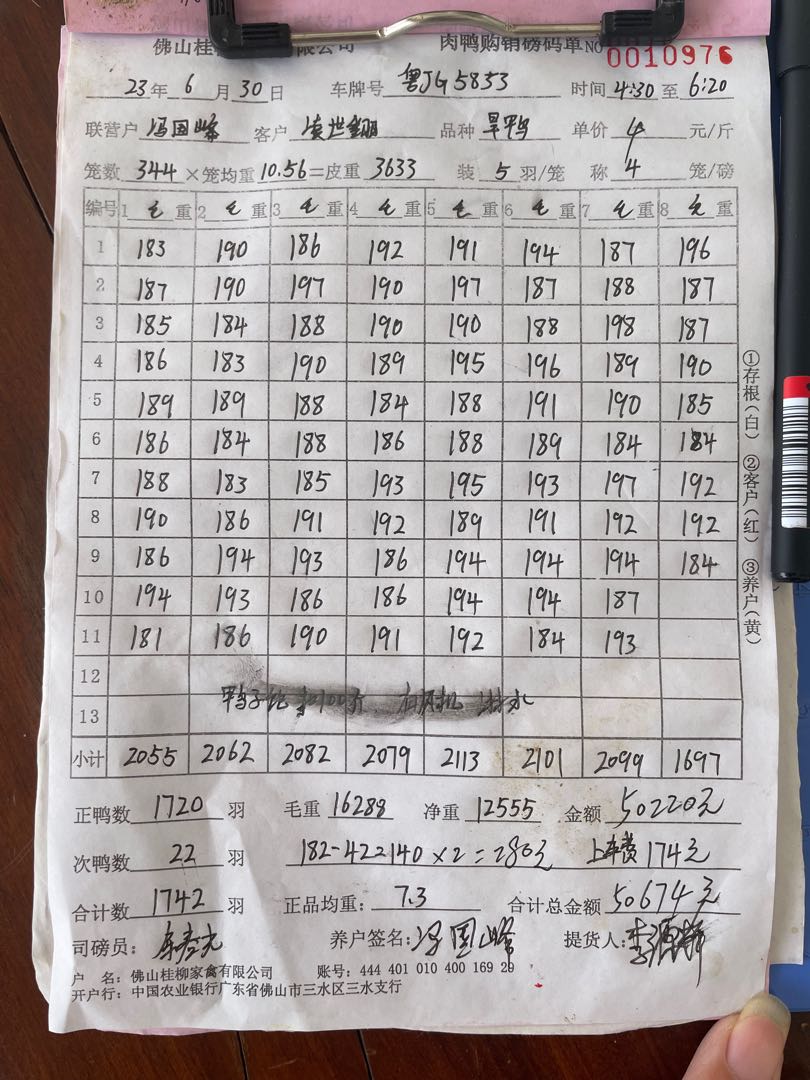 佛山桂 限公司 肉鸭购销磅码单 NO 0010976
23年 6月 30日 车牌号 粤JG5833 时间 4:30 至 6:20
联营户 冯国峰 客户 凌世 品种 旱鸭 单价 4 元/斤
笼数 344 ×笼均重 10.56 =皮重 3633 装 5 羽/笼 称 4 笼/磅
编号 1 毛 重 2 毛 重 3 毛 重 4 毛 重 5 毛 重 6 毛 重 7 毛 重 8 毛 重
1 183 190 186 192 191 194 187 196
2 187 190 197 190 197 187 188 187
3 185 184 188 190 190 188 198 187
4 186 183 190 189 195 196 189 190
5 189 189 188 184 188 191 190 185
6 186 184 188 186 188 189 184 184
7 188 183 185 193 195 193 197 192
8 190 186 191 192 189 191 192 192
9 186 194 193 186 194 194 194 184
10 194 193 186 186 194 194 187
11 181 186 190 191 192 184 193
12
鸭子 扣100斤 有风机 淋水
13
小计 2055 2062 2082 2079 2113 2101 2099 1697
正鸭数 1720 羽 毛重 16288 净重 12555 金额 50220元
次鸭数 22 羽 182-42=140×2=280元 上车费174元
合计数 1742 羽 正品均重: 7.3 合计总金额 50674元
司磅员: 养户签名: 冯国峰 提货人: 李
户 名: 佛山桂柳家禽有限公司 账号: 444 401 010 400 169 29
开户行: 中国农业银行广东省佛山市三水区三水支行
①存根(白) ②客户(红) ③养户(黄)